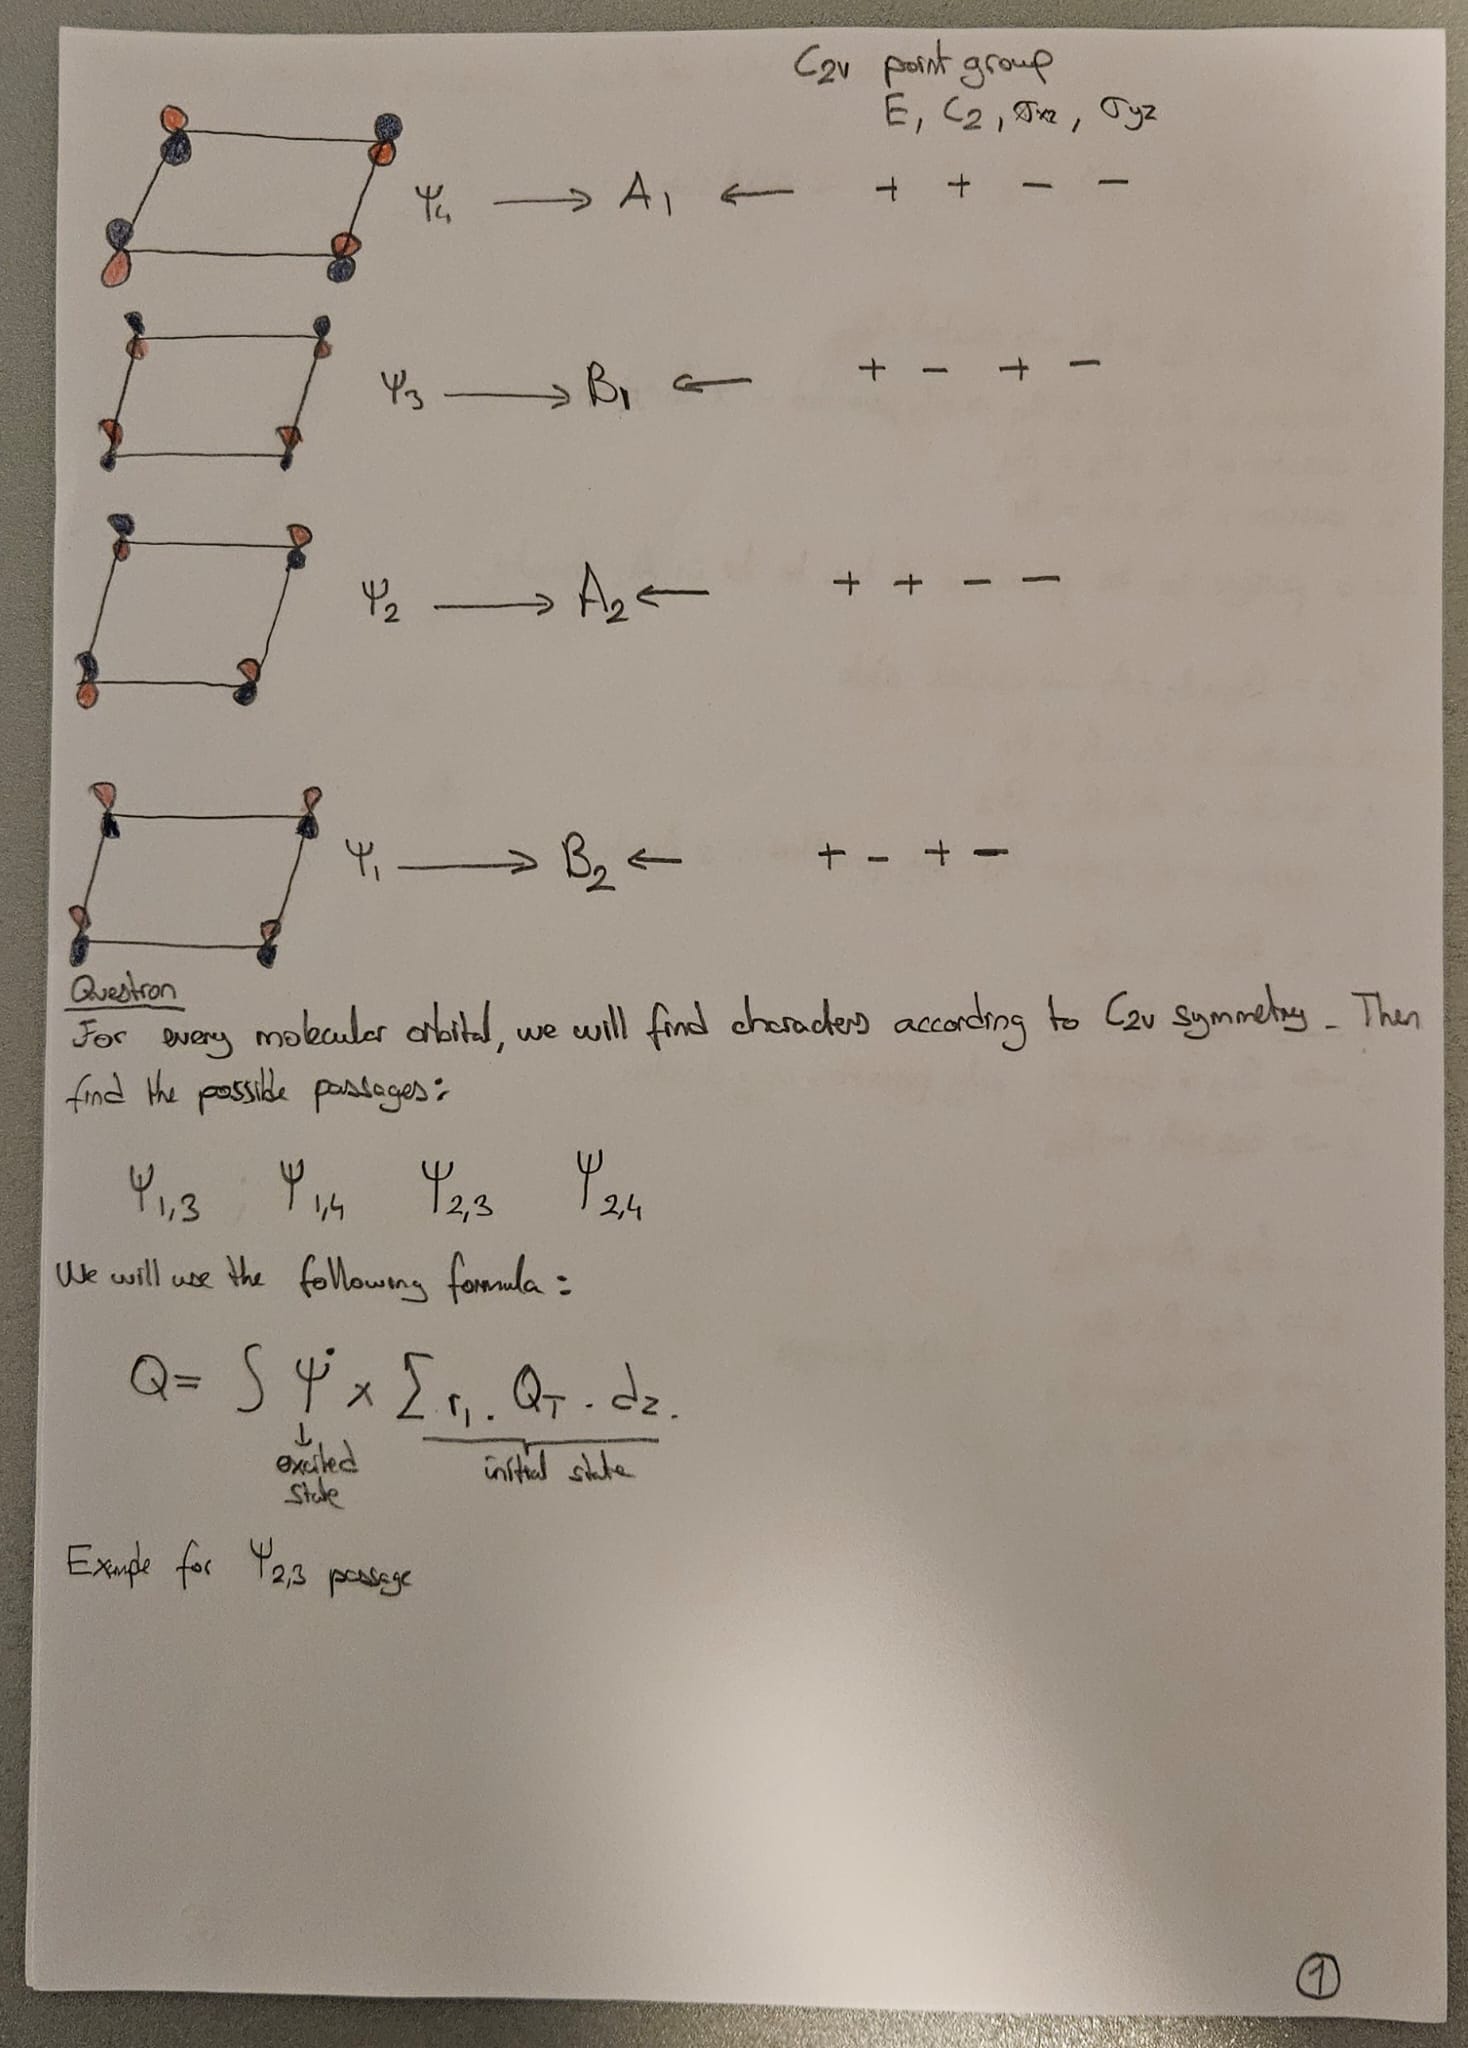 C2v point group
E, C2, σxz, σyz
Ψ4 → A1 ← + + − −
Ψ3 → B1 ← + − + −
Ψ2 → A2 ← + + − −
Ψ1 → B2 ← + − + −
Question
For every molecular orbital, we will find characters according to C2v symmetry. Then
find the possible passages:
Ψ1,3 Ψ1,4 Ψ2,3 Ψ2,4
We will use the following formula:
Q= ∫ Ψ* x Σ r1 . QT . dz.
↓
excited
state
initial state
Exemple for Ψ2,3 passage
1